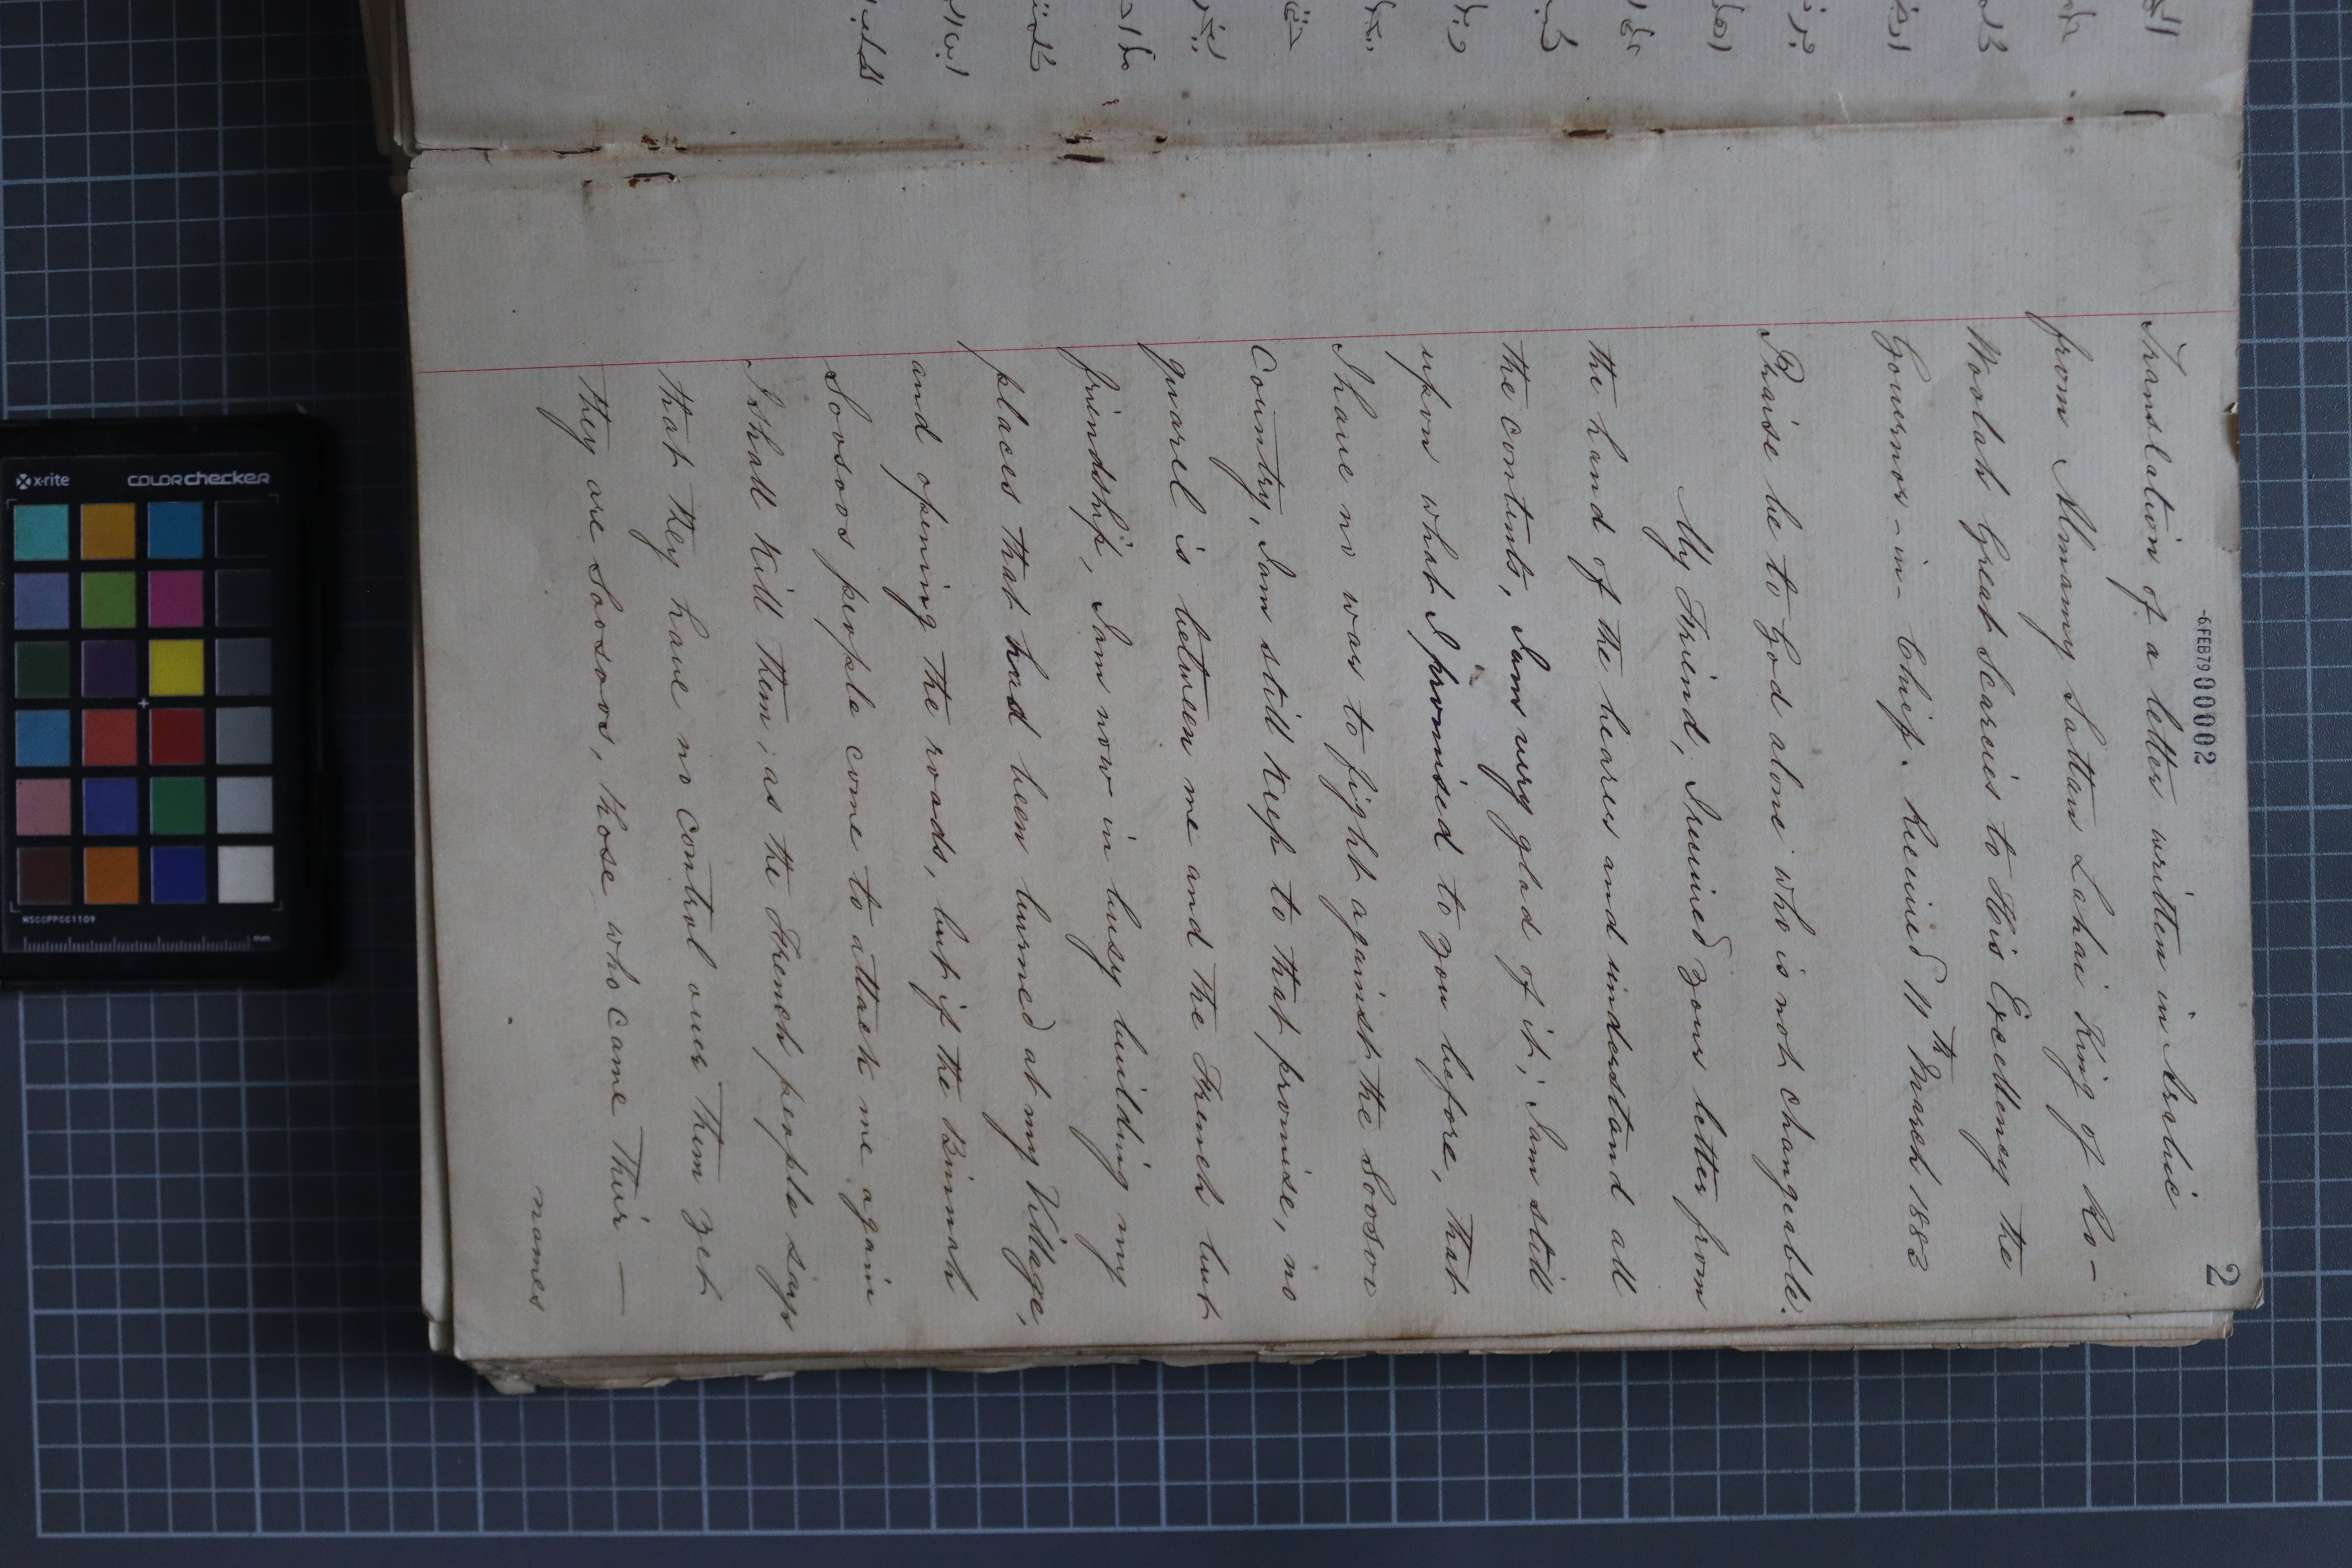 -6 FEB 79 00002
2
Translation of a letter written in Arabic
from Almamy Sattan Lahai King of Ro-
Woolah Great Scarcies to His Excellency the
Governor-in-Chief. Received 11th March 1882
Praise be to God alone who is not changeable.
My Friend, I received your letter from
the hand of the bearer and understand all
the contents, I am very glad of it; I am still
upon what I promised to you before, that
I have no war to fight against the Soosoo
Country, I am still keep to that promise, no
quarel is between me and the French but
friendship, I am now in busy building my
places that had been burned at my Village,
and opening the roads, but if the Binnah
Soosoos people come to attack me again
I shall kill them; as the French people says
that they have no control over them yet
they are Soosoos, those who came their —
names
x-rite
colorchecker
MSCCPPCC1109
mm